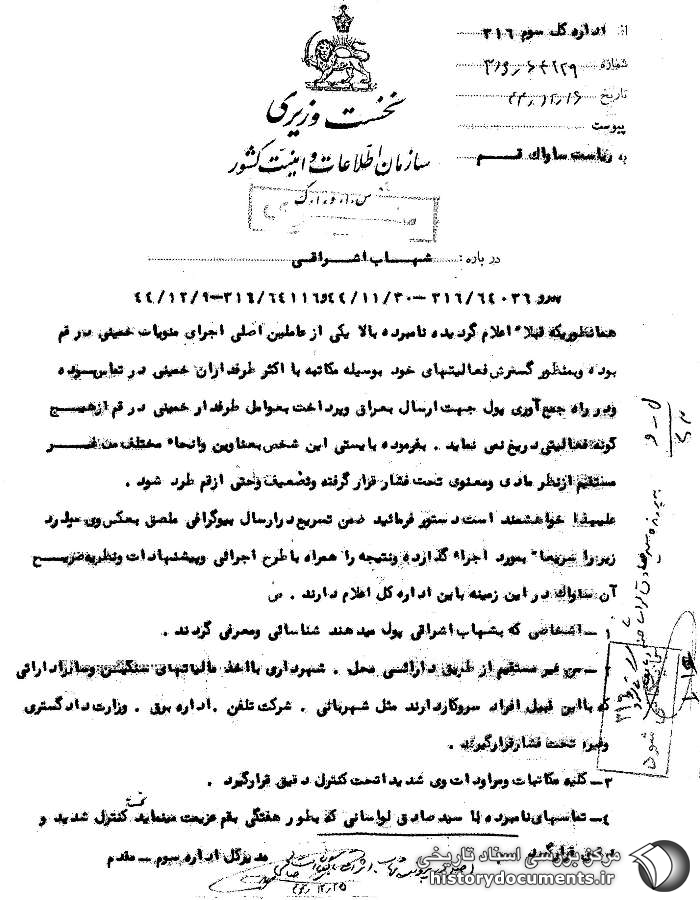 از اداره کل سوم ۳۱۶
شماره
تاریخ
پیوست
به ریاست ساواک قم
نخست وزیری
سازمان اطلاعات و امنیت کشور
س.ا.و.ا.ک
درباره : شهاب اشراقی
پیرو ۳۱۶/۶۴۰۳۶ – ۴۴/۱۱/۳۰ و ۳۱۶/۶۴۱۱۶ – ۴۴/۱۲/۹
همانطوریکه قبلا" اعلام گردیده نامبرده بالا یکی از عاملین اصلی اجرای منویات خمینی در قم
بوده و بمنظور گسترش فعالیتهای خود بوسیله مکاتبه با اکثر طرفداران خمینی در تماس بوده
و در راه جمع آوری پول جهت ارسال بعراق و پرداخت بعوامل طرفدار خمینی در قم از هیچ
گونه فعالیتی دریغ نمی نماید . بفرموده بایستی این شخص بعناوین وانحاء مختلف من غیر
مستقیم از نظر مادی ومعنوی تحت فشار قرار گرفته وتضعیف وحتی از قم طرد شود .
علیهذا خواهشمند است دستور فرمائید ضمن تسریع در ارسال بیوگرافی ملصق بعکس وی
زیر را سریعا" بمورد اجراء گذارده ونتیجه را همراه با طرح اجرائی وپیشنهادات ونظریه صریح
آن ساواک در این زمینه باین اداره کل اعلام دارند .
۱ – اشخاصی که بشهاب اشراقی پول میدهند شناسائی ومعرفی گردند .
۲ – من غیر مستقیم از طریق دارائی محل . شهرداری با اخذ مالیاتهای سنگین وسایر اداراتی
که با این قبیل افراد سروکار دارند مثل شهربانی . شرکت تلفن . اداره برق . وزارت دادگستری
وغیره تحت فشار قرار گیرند .
۳ – کلیه مکاتبات ومراودات وی شدیدا تحت کنترل دقیق قرار گیرد .
۴ – تماسهای نامبرده با سید صادق لواسانی که بطور هفتگی بقم عزیمت مینماید تحت کنترل شدید و
دقیق قرار گیرد
مدیر کل اداره سوم – مقدم
مرکز بررسی اسناد تاریخی
historydocuments.ir